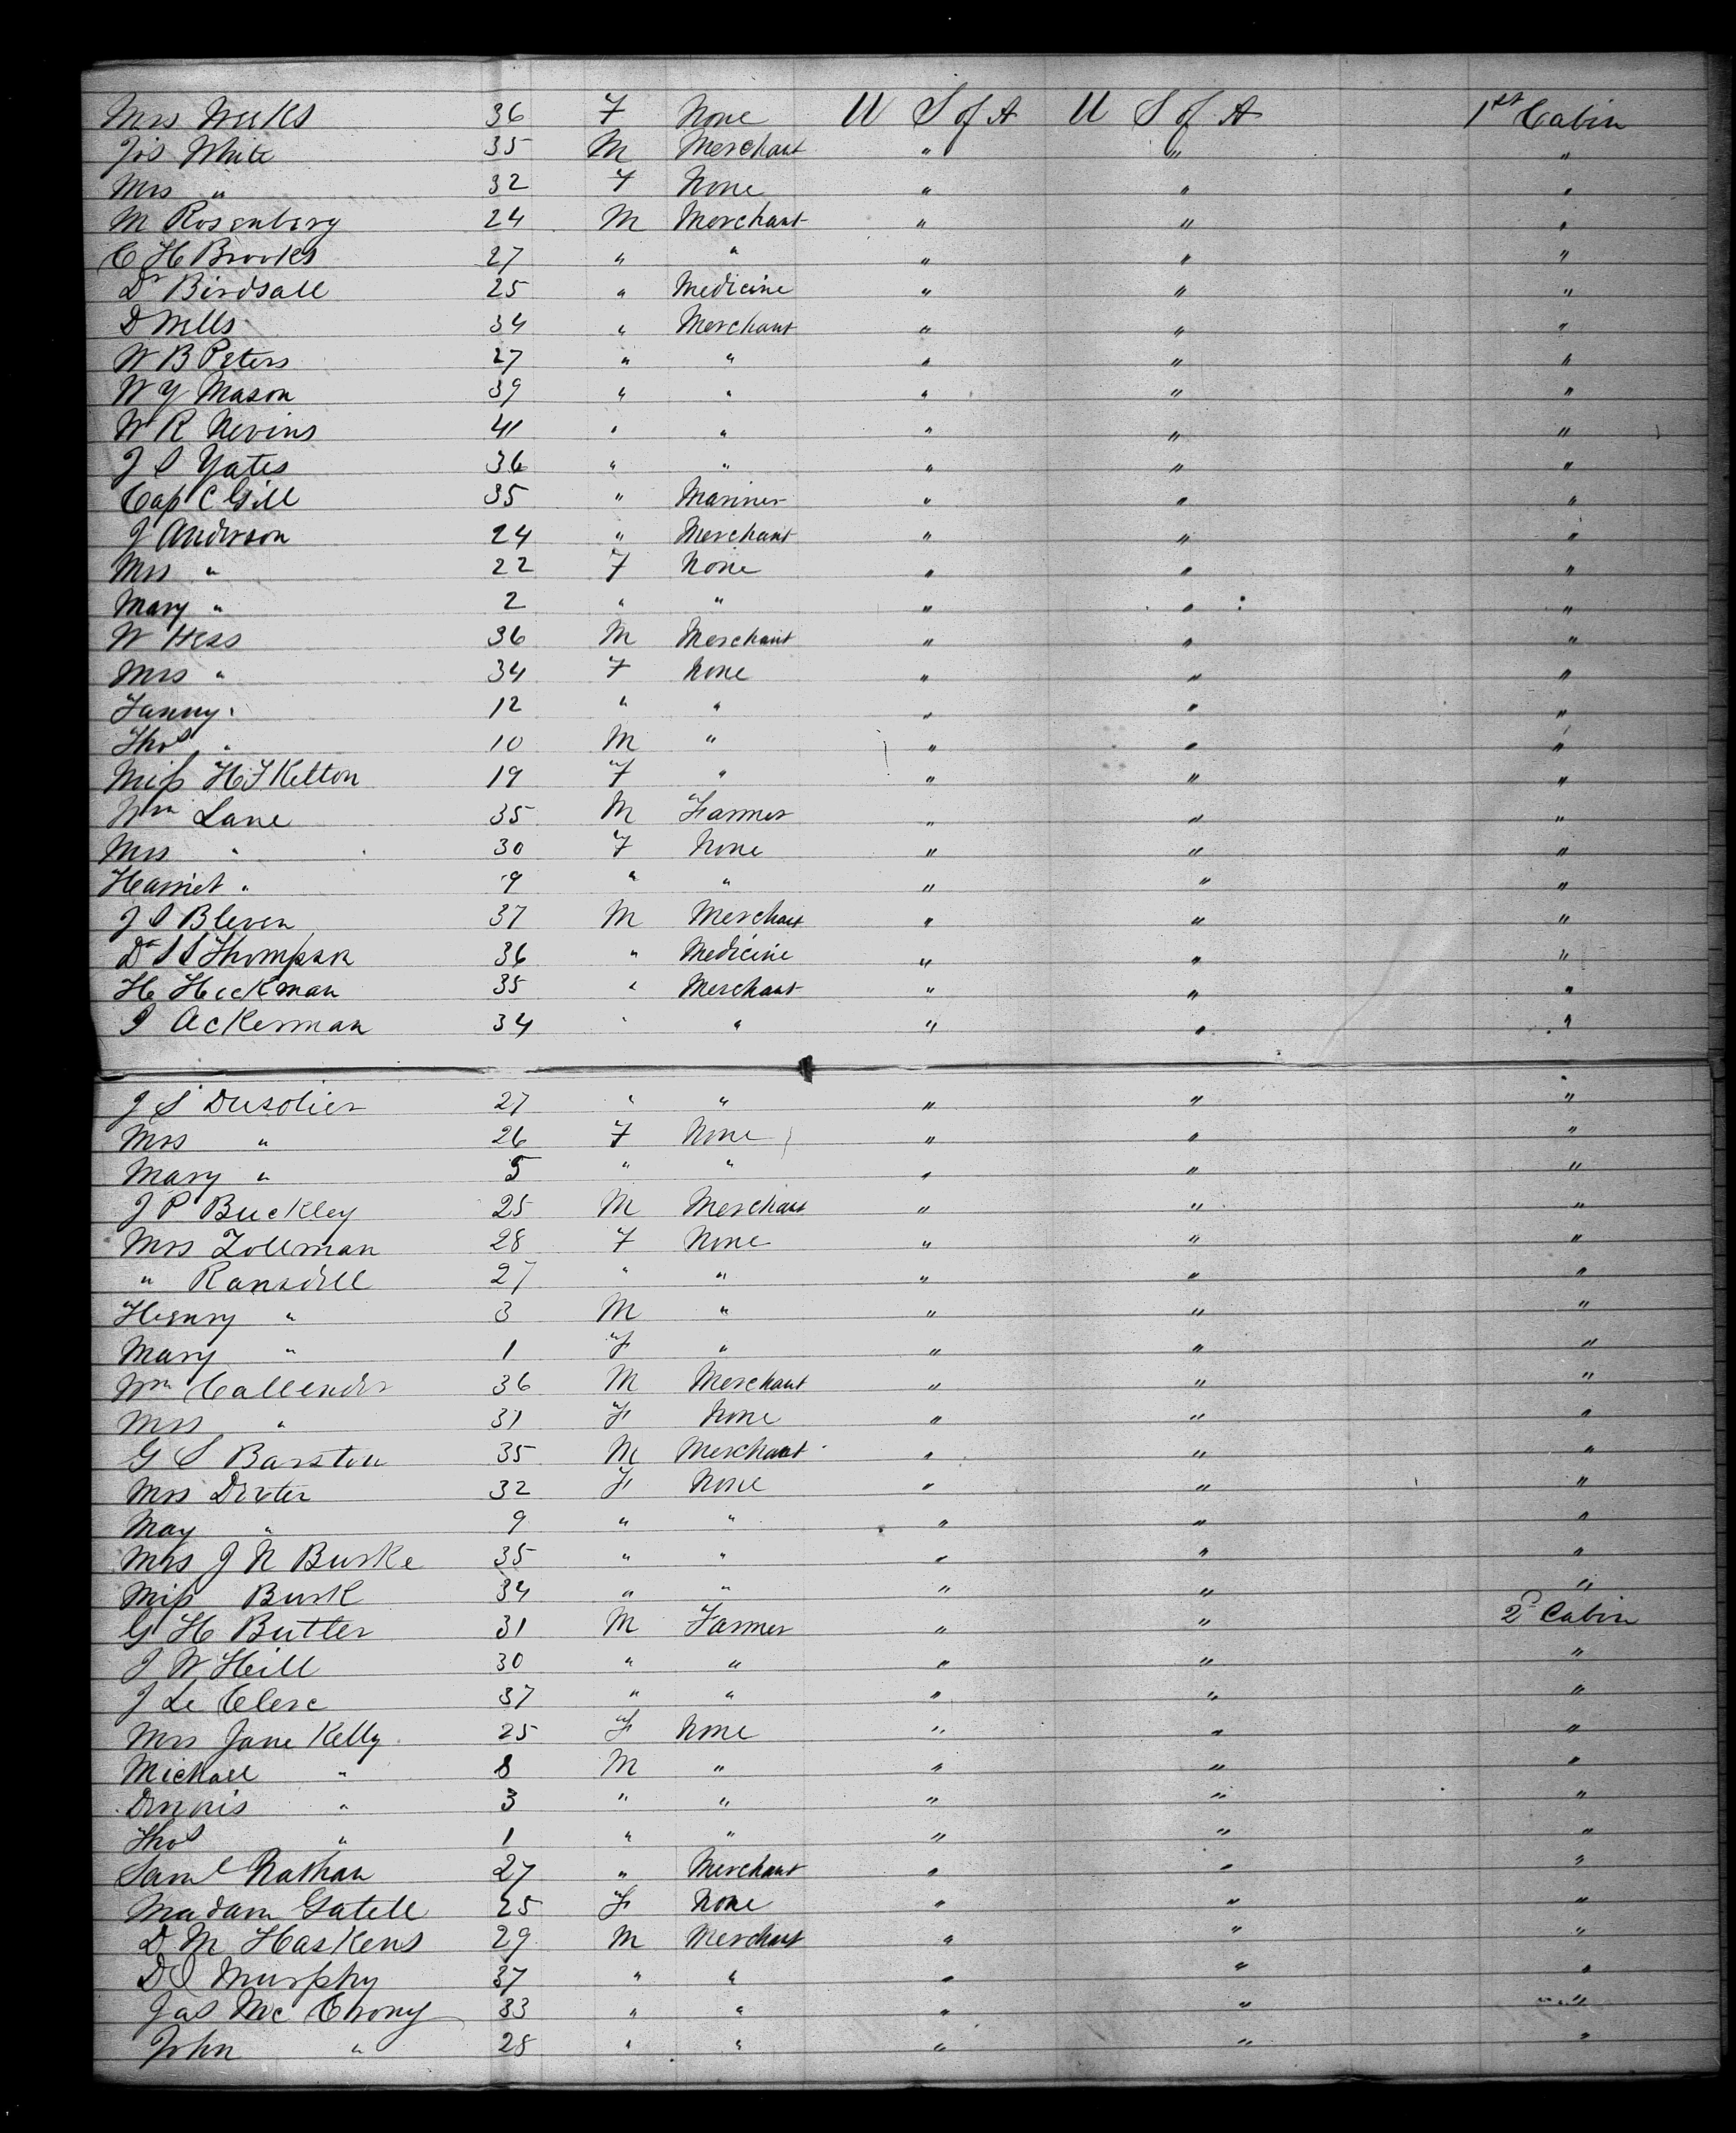 Mrs Weeks 36 F None U S of A U S of A 1st Cabin
Jos White 35 M Merchant " " "
Mrs " 32 F None " " "
M Rosenberg 24 M Merchant " " "
C H Brooks 27 " " " " "
Dr Birdsall 25 " Medicine " " "
D Wells 34 " Merchant " " "
W B Peters 27 " " " " "
W Y Mason 39 " " " " "
W R Nevins 41 " " " " "
J S Yates 36 " " " " "
Cap C Gill 35 " Mariner " " "
J Anderson 24 " Merchant " " "
Mrs " 22 F None " " "
Mary " 2 " " " " "
W Hess 36 M Merchant " " "
Mrs " 34 F None " " "
Fanny " 12 " " " " "
Thos " 10 M " " " "
Miss H F Kelton 19 F " " " "
Wm Lane 35 M Farmer " " "
Mrs " 30 F None " " "
Harriet " 9 " " " " "
J S Bleven 37 M Merchant " " "
Dr Thompson 36 " Medicine " " "
H Heckman 35 " Merchant " " "
J Ackerman 34 " " " " "
J S Dusolier 27 " " " " "
Mrs " 26 F None " " "
Mary " 5 " " " " "
J P Buckley 25 M Merchant " " "
Mrs Zollman 28 F None " " "
" Ransdell 27 " " " " "
Henry " 3 M " " " "
Mary " 1 F " " " "
Wm Callender 36 M Merchant " " "
Mrs " 31 F None " " "
G S Barstow 35 M Merchant " " "
Mrs Dexter 32 F None " " "
May " 9 " " " " "
Mrs J N Burke 35 " " " " "
Miss Burk 34 " " " " "
G H Butler 31 M Farmer " " 2d Cabin
J W Hill 30 " " " " "
J Le Clerc 37 " " " " "
Mrs Jane Kelly 25 F None " " "
Michael " 8 M " " " "
Dennis " 3 " " " " "
Thos " 1 " " " " "
Saml Nathan 27 " Merchant " " "
Madam Gatell 25 F None " " "
D M Haskens 29 M Merchant " " "
D S Murphy 37 " " " " "
Jas Mc Crony 33 " " " " "
John " 28 " " " " "